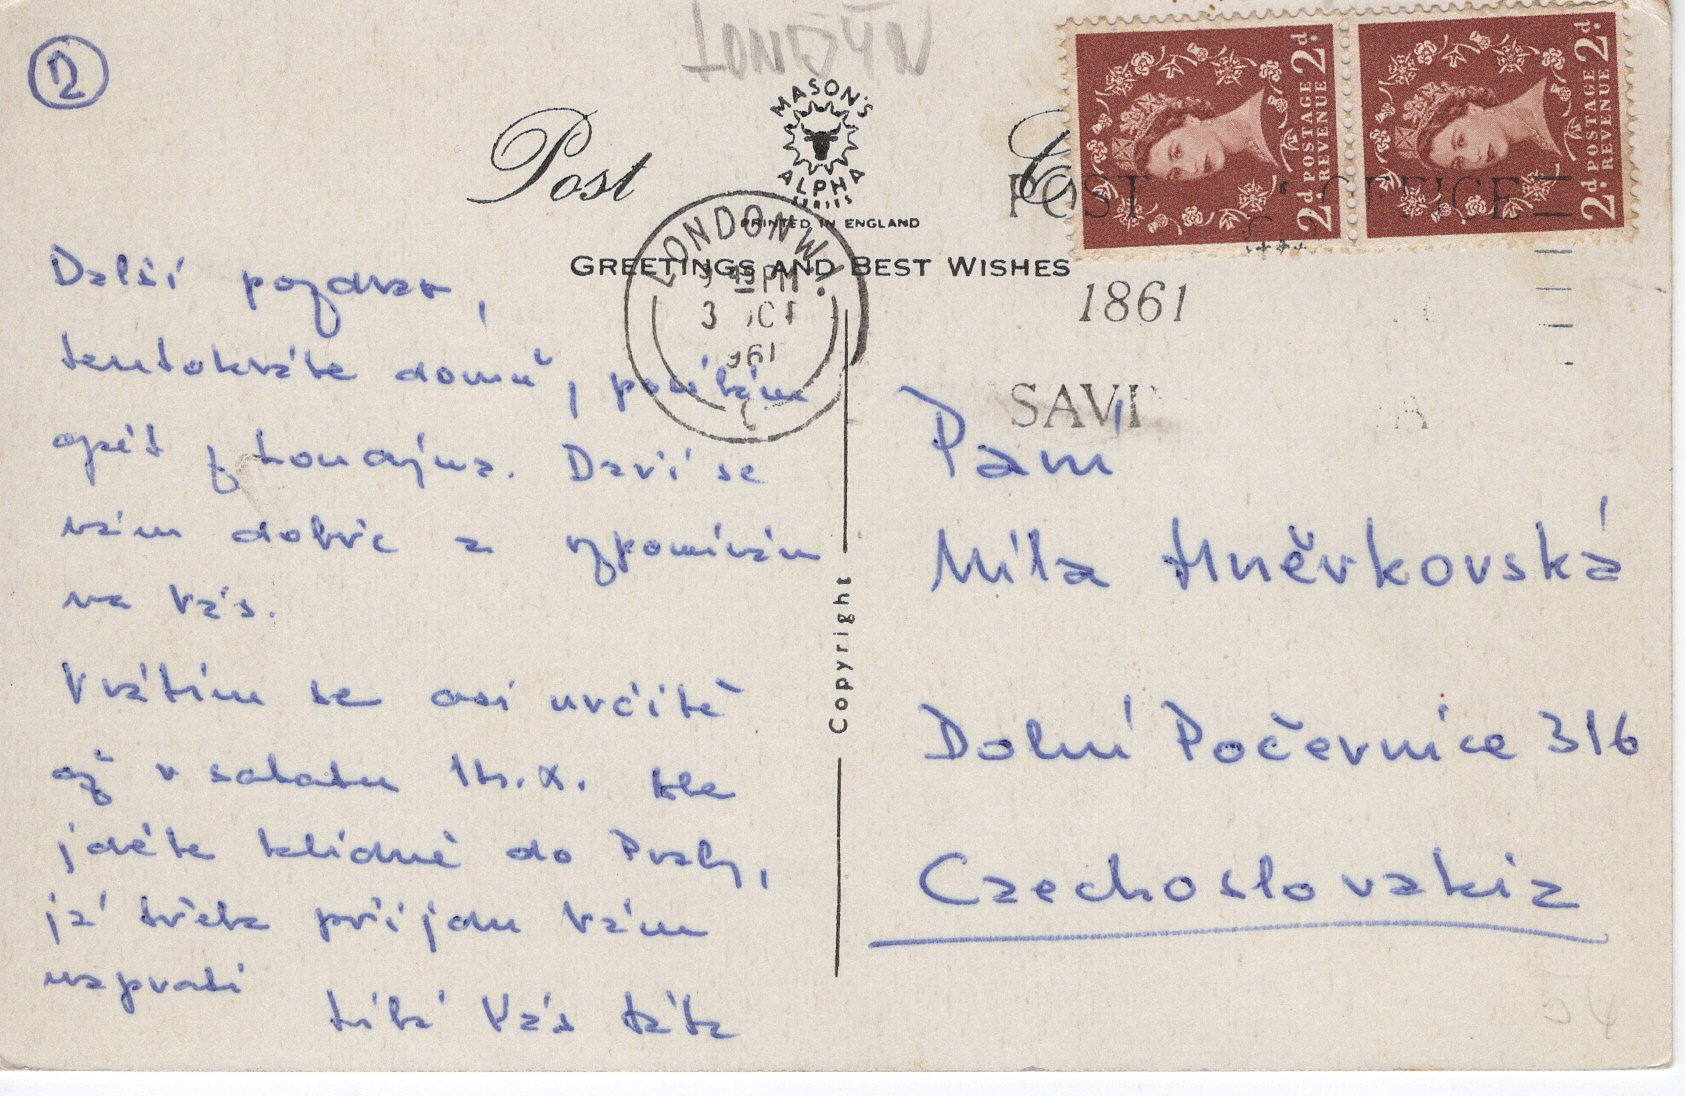 ②
LONDÝN
Post
MASON'S
ALPHA
SERIES
PRINTED IN ENGLAND
GREETINGS AND BEST WISHES
2d POSTAGE REVENUE 2d
2d POSTAGE REVENUE 2d
POST OFFICE
1861
SAVI
LONDON W.1.
PM
3 OCT
961
Další pozdrav,
tentokráte domů, posílám
opět z Londýna. Daří se
nám dobře a vzpomínám
na Vás.
Vrátím se asi určitě
až v sobotu 14.X. Ale
jdete klidně do Prahy,
já třeba přijdu Vám
naproti
Líbá Vás táta
Copyright
Paní
Míla Hněvkovská
Dolní Počernice 316
Czechoslovakia